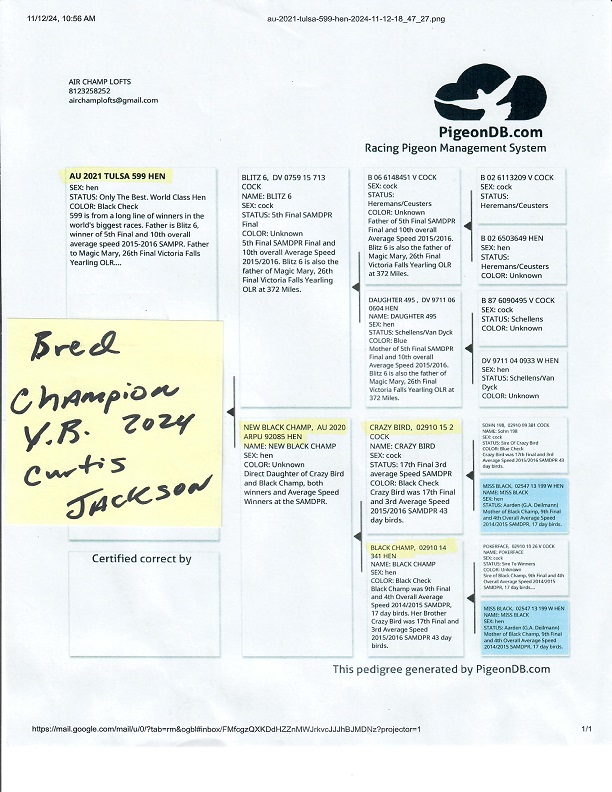 11/12/24, 10:56 AM
au-2021-tulsa-599-hen-2024-11-12-18_47_27.png
AIR CHAMP LOFTS
8123258252
airchamplofts@gmail.com
PigeonDB.com
Racing Pigeon Management System
AU 2021 TULSA 599 HEN
SEX: hen
STATUS: Only The Best. World Class Hen
COLOR: Black Check
599 is from a long line of winners in the
world's biggest races. Father is Blitz 6,
winner of 5th Final and 10th overall
average speed 2015-2016 SAMPR. Father
to Magic Mary, 26th Final Victoria Falls
Yearling OLR....
Bred
Champion
Y.B. 2024
Curtis
Jackson
Certified correct by
BLITZ 6, DV 0759 15 713
COCK
NAME: BLITZ 6
SEX: cock
STATUS: 5th Final SAMDPR
Final
COLOR: Unknown
5th Final SAMDPR Final and
10th overall Average Speed
2015/2016. Blitz 6 is also the
father of Magic Mary, 26th
Final Victoria Falls Yearling
OLR at 372 Miles.
NEW BLACK CHAMP, AU 2020
ARPU 92085 HEN
NAME: NEW BLACK CHAMP
SEX: hen
COLOR: Unknown
Direct Daughter of Crazy Bird
and Black Champ, both
winners and Average Speed
Winners at the SAMDPR.
B 06 6148451 V COCK
SEX: cock
STATUS:
Heremans/Ceusters
COLOR: Unknown
Father of 5th Final SAMDPR
Final and 10th overall
Average Speed 2015/2016.
Blitz 6 is also the father of
Magic Mary, 26th Final
Victoria Falls Yearling OLR
at 372 Miles.
DAUGHTER 495 , DV 9711 06
0604 HEN
NAME: DAUGHTER 495
SEX: hen
STATUS: Schellens/Van Dyck
COLOR: Blue
Mother of 5th Final SAMDPR
Final and 10th overall
Average Speed 2015/2016.
Blitz 6 is also the father of
Magic Mary, 26th Final
Victoria Falls Yearling
OLR at 372 Miles.
CRAZY BIRD, 02910 15 2
COCK
NAME: CRAZY BIRD
SEX: cock
STATUS: 17th Final 3rd
average Speed SAMDPR
COLOR: Black Check
Crazy Bird was 17th Final
and 3rd Average Speed
2015/2016 SAMDPR 43
day birds.
BLACK CHAMP, 02910 14
341 HEN
NAME: BLACK CHAMP
SEX: hen
COLOR: Black Check
Black Champ was 9th Final
and 4th Overall Average
Speed 2014/2015 SAMDPR,
17 day birds. Her Brother
Crazy Bird was 17th Final and
3rd Average Speed
2015/2016 SAMDPR 43 day
birds.
B 02 6113209 V COCK
SEX: cock
STATUS:
Heremans/Ceusters
B 02 6503649 HEN
SEX: hen
STATUS:
Heremans/Ceusters
COLOR: Unknown
B 87 6090495 V COCK
STATUS: Schellens
COLOR: Unknown
DV 9711 04 0933 W HEN
SEX: hen
STATUS: Schellens/Van
Dyck
COLOR: Unknown
SOHN 198, 02910 09 381 COCK
NAME: Sohn 198
SEX: cock
STATUS: Sire Of Crazy Bird
COLOR: Blue Check
Crazy Bird was 17th Final and 3rd
Average Speed 2015/2016 SAMDPR 43
day birds.
MISS BLACK, 02547 13 199 W HEN
NAME: MISS BLACK
SEX: hen
STATUS: Aarden (G.A. Deilmann)
Mother of Black Champ, 9th Final
and 4th Overall Average Speed
2014/2015 SAMDPR, 17 day birds.
POKERFACE, 02910 10 26 V COCK
NAME: POKERFACE
SEX: cock
STATUS: Sire To Winners
COLOR: Unknown
Sire of Black Champ, 9th Final and 4th
Overall Average Speed 2014/2015
SAMDPR, 17 day birds....
MISS BLACK, 02547 13 199 W HEN
NAME: MISS BLACK
SEX: hen
STATUS: Aarden (G.A. Deilmann)
Mother of Black Champ, 9th Final
and 4th Overall Average Speed
2014/2015 SAMDPR, 17 day birds.
This pedigree generated by PigeonDB.com
https://mail.google.com/mail/u/0/?tab=rm&ogbl#inbox/FMfcgzQXKDdHZZnMWJrkvcJJJhBJMDNz?projector=1
1/1